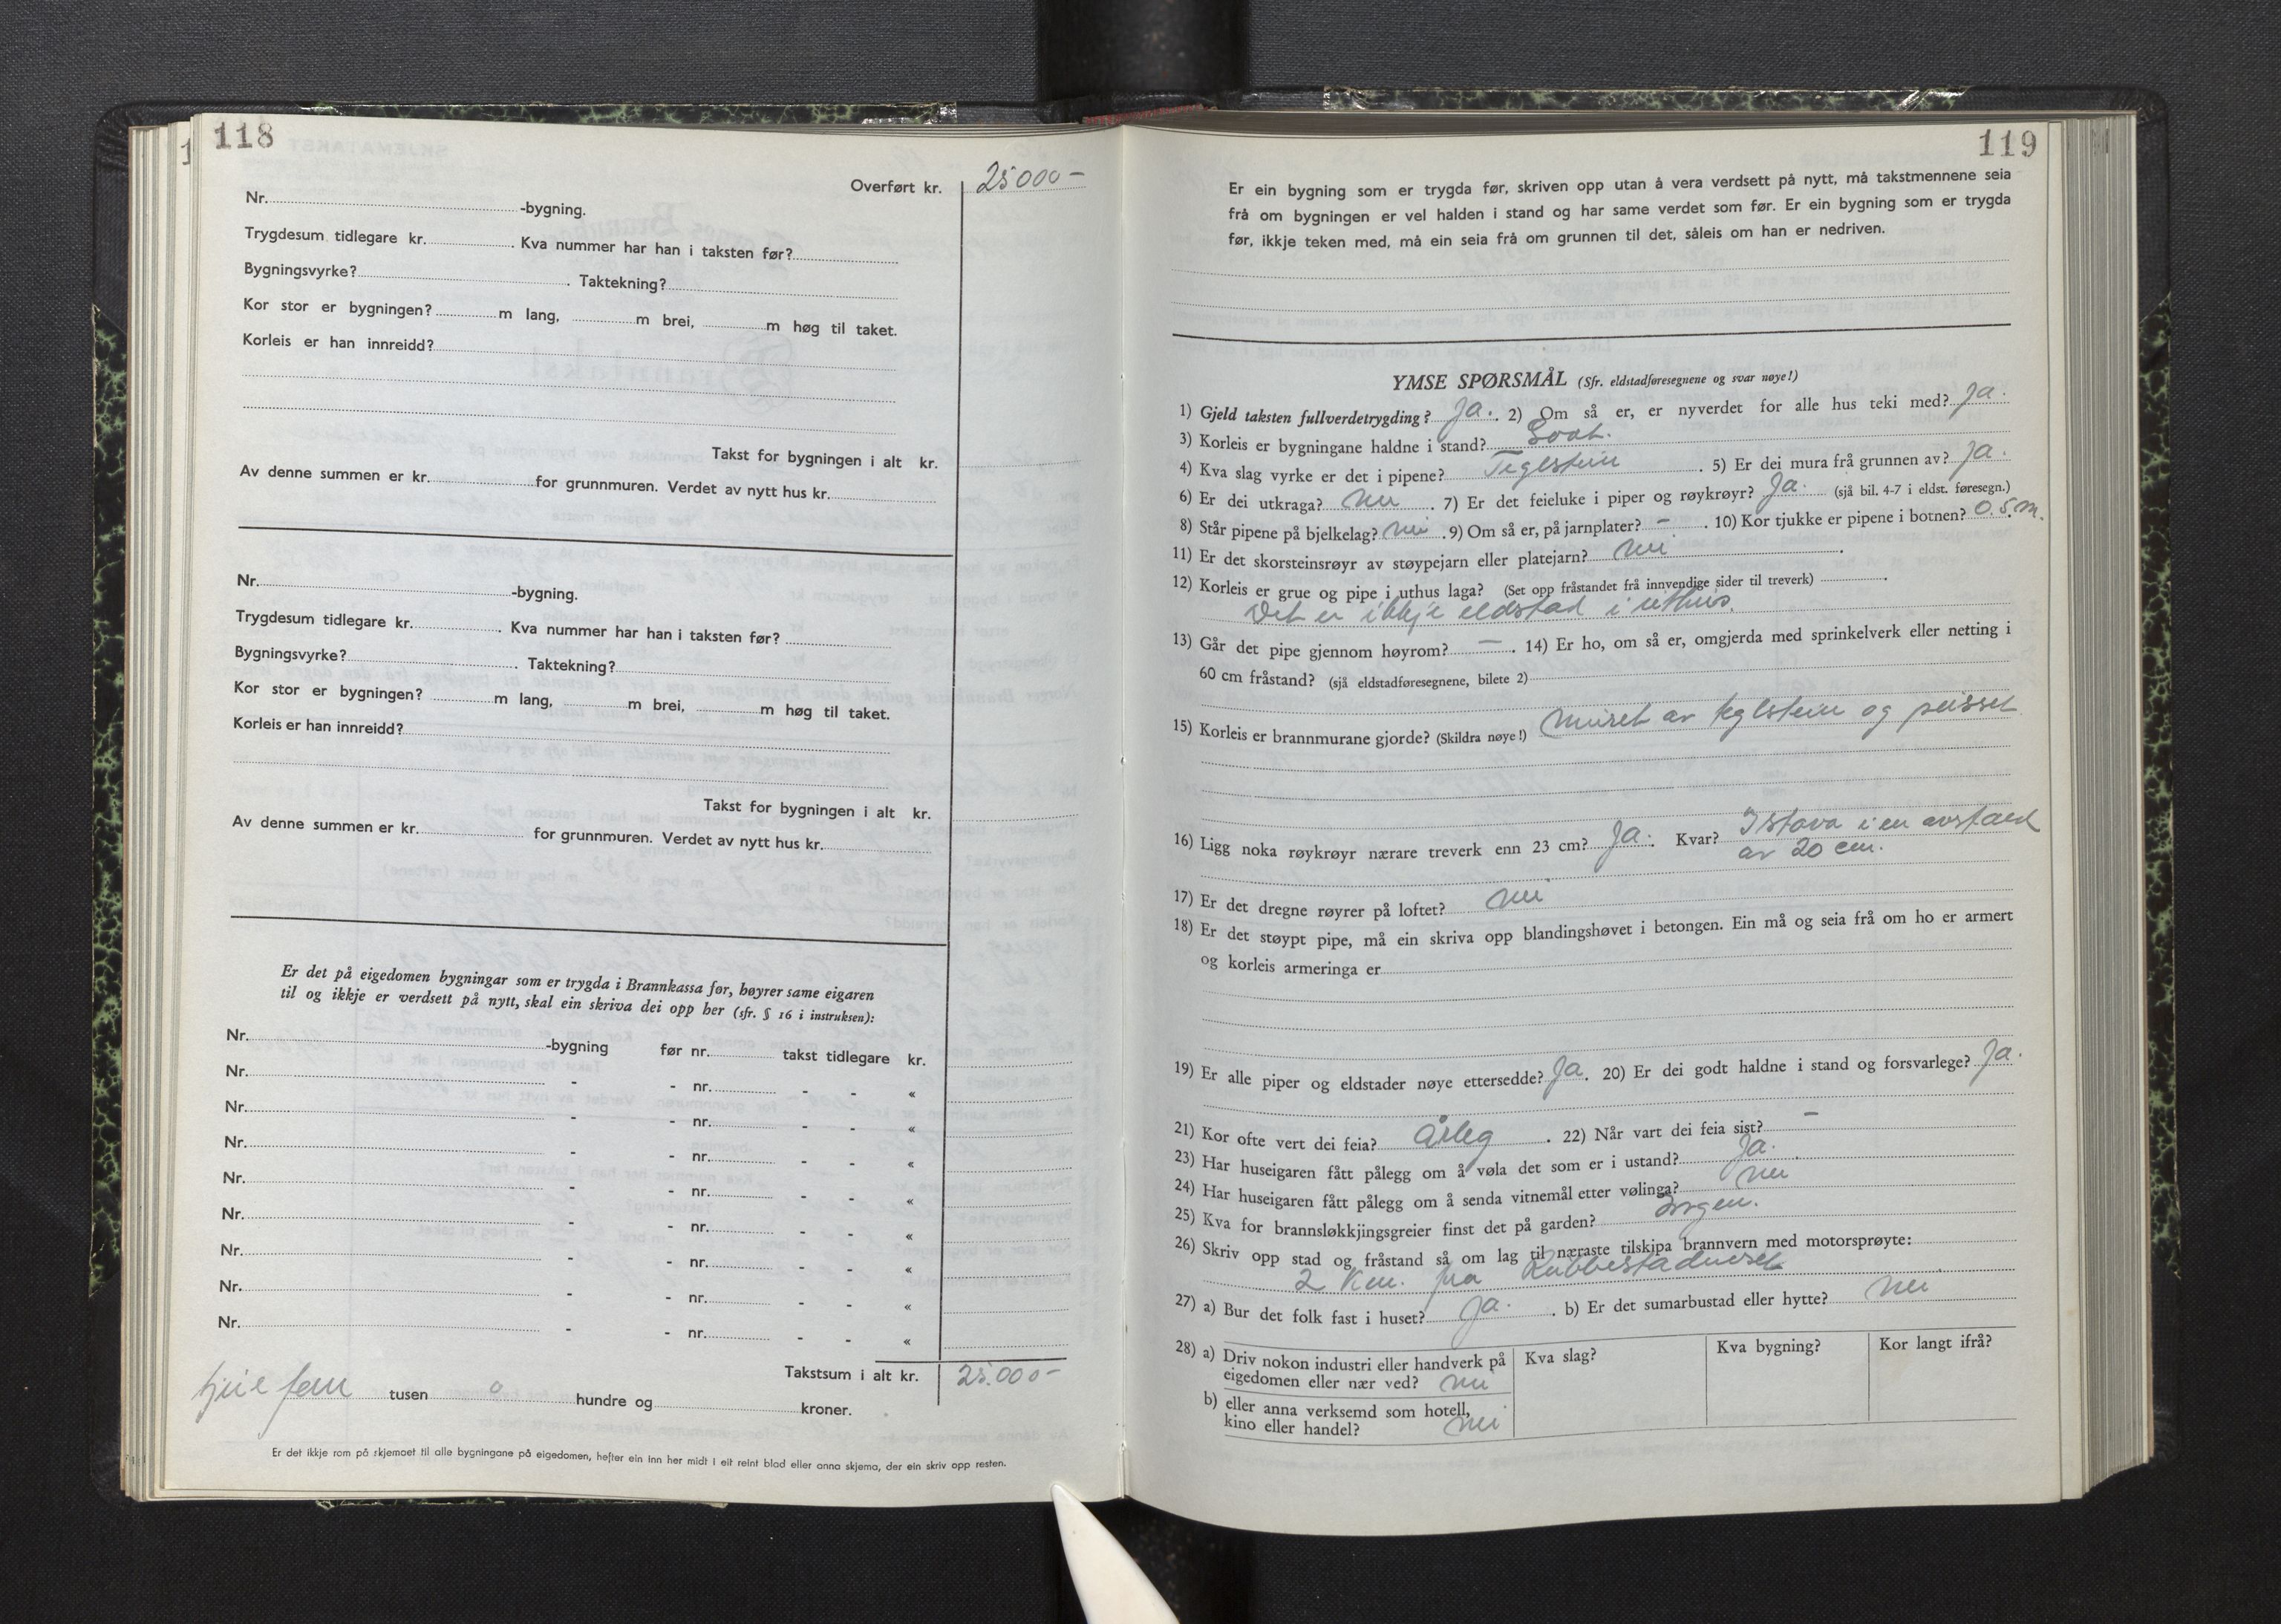 118
Overført kr. 25000-
Nr. -bygning.
Trygdesum tidlegare kr. . Kva nummer har han i taksten før?
Bygningsvyrke? . Taktekning?
Kor stor er bygningen? m lang, m brei, m høg til taket.
Korleis er han innreidd?
Takst for bygningen i alt kr.
Av denne summen er kr. for grunnmuren. Verdet av nytt hus kr.
Nr. -bygning.
Trygdesum tidlegare kr. . Kva nummer har han i taksten før?
Bygningsvyrke? . Taktekning?
Kor stor er bygningen? m lang, m brei, m høg til taket.
Korleis er han innreidd?
Takst for bygningen i alt kr.
Av denne summen er kr. for grunnmuren. Verdet av nytt hus kr.
Er det på eigedomen bygningar som er trygda i Brannkassa før, høyrer same eigaren
til og ikkje er verdsett på nytt, skal ein skriva dei opp her (sfr. § 16 i instruksen):
Nr. -bygning før nr. takst tidlegare kr.
Nr. - - nr. - - «
Nr. - - nr. - - «
Nr. - - nr. - - «
Nr. - - nr. - - «
Nr. - - nr. - - «
Nr. - - nr. - - «
Nr. - - nr. - - «
Nr. - - nr. - - «
Takstsum i alt kr. 25.000-
tjue fem tusen o hundre og kroner.
Er det ikkje rom på skjemaet til alle bygningane på eigedomen, hefter ein inn her midt i eit reint blad eller anna skjema, der ein skriv opp resten.
119
Er ein bygning som er trygda før, skriven opp utan å vera verdsett på nytt, må takstmennene seia
frå om bygningen er vel halden i stand og har same verdet som før. Er ein bygning som er trygda
før, ikkje teken med, må ein seia frå om grunnen til det, såleis om han er nedriven.
YMSE SPØRSMÅL (Sfr. eldstadføresegnene og svar nøye!)
1) Gjeld taksten fullverdetrygding? Ja. . 2) Om så er, er nyverdet for alle hus teki med? Ja.
3) Korleis er bygningane haldne i stand? Godt.
4) Kva slag vyrke er det i pipene? Teglstein . 5) Er dei mura frå grunnen av? Ja.
6) Er dei utkraga? nei . 7) Er det feieluke i piper og røykrøyr? Ja. (sjå bil. 4-7 i eldst. føresegn.)
8) Står pipene på bjelkelag? nei . 9) Om så er, på jarnplater? - . 10) Kor tjukke er pipene i botnen? 0.5 m.
11) Er det skorsteinsrøyr av støypejarn eller platejarn? nei .
12) Korleis er grue og pipe i uthus laga? (Set opp fråstandet frå innvendige sider til treverk) .
Det er ikkje eldstad i uthus.
13) Går det pipe gjennom høyrom? - . 14) Er ho, om så er, omgjerda med sprinkelverk eller netting i
60 cm fråstand? (sjå eldstadføresegnene, bilete 2)
15) Korleis er brannmurane gjorde? (Skildra nøye!) Muret av teglstein og pusset
16) Ligg noka røykrøyr nærare treverk enn 23 cm? Ja. Kvar? I stova i en avstand
av 20 cm.
17) Er det dregne røyrer på loftet? nei
18) Er det støypt pipe, må ein skriva opp blandingshøvet i betongen. Ein må og seia frå om ho er armert
og korleis armeringa er
19) Er alle piper og eldstader nøye ettersedde? Ja. 20) Er dei godt haldne i stand og forsvarlege? Ja.
21) Kor ofte vert dei feia? Årleg . 22) Når vart dei feia sist? -
23) Har huseigaren fått pålegg om å vøla det som er i ustand? Ja. .
24) Har huseigaren fått pålegg om å senda vitnemål etter vølinga? nei
25) Kva for brannsløkkjingsgreier finst det på garden? Ingen.
26) Skriv opp stad og fråstand så om lag til næraste tilskipa brannvern med motorsprøyte:
2 Km. fra Rubbestadneset
27) a) Bur det folk fast i huset? Ja. . b) Er det sumarbustad eller hytte? nei
28) a) Driv nokon industri eller handverk på eigedomen eller nær ved? nei
Kva slag? Kva bygning? Kor langt ifrå?
b) eller anna verksemd som hotell,
kino eller handel? nei